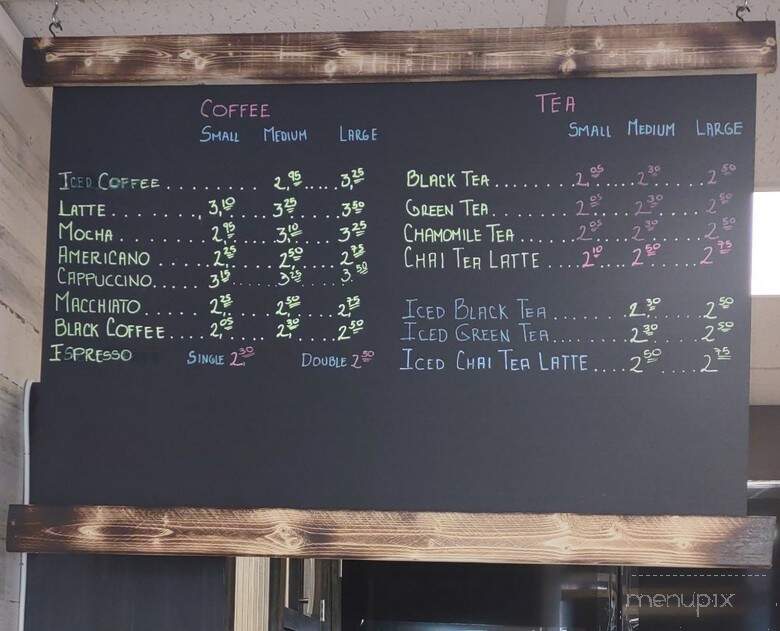 COFFEE
SMALL MEDIUM LARGE
ICED COFFEE.......... 2,95.....3,25
LATTE..........3,10.....3,25.....3,50
MOCHA..........2,95.....3,10.....3,25
AMERICANO.......2,25.....2,50.....2,75
CAPPUCCINO......3,15.....3,25.....3,50
MACCHIATO.......2,25.....2,50.....2,75
BLACK COFFEE....2,05.....2,30.....2,50
ESPRESSO SINGLE 2,30 DOUBLE 2,50
TEA
SMALL MEDIUM LARGE
BLACK TEA.......2,05....2,30.....2,50
GREEN TEA.......2,05....2,30.....2,50
CHAMOMILE TEA...2,05....2,30.....2,50
CHAI TEA LATTE...2,10....2,50.....2,75
ICED BLACK TEA.......2,30.....2,50
ICED GREEN TEA.......2,30.....2,50
ICED CHAI TEA LATTE....2,50.....2,75
menupix